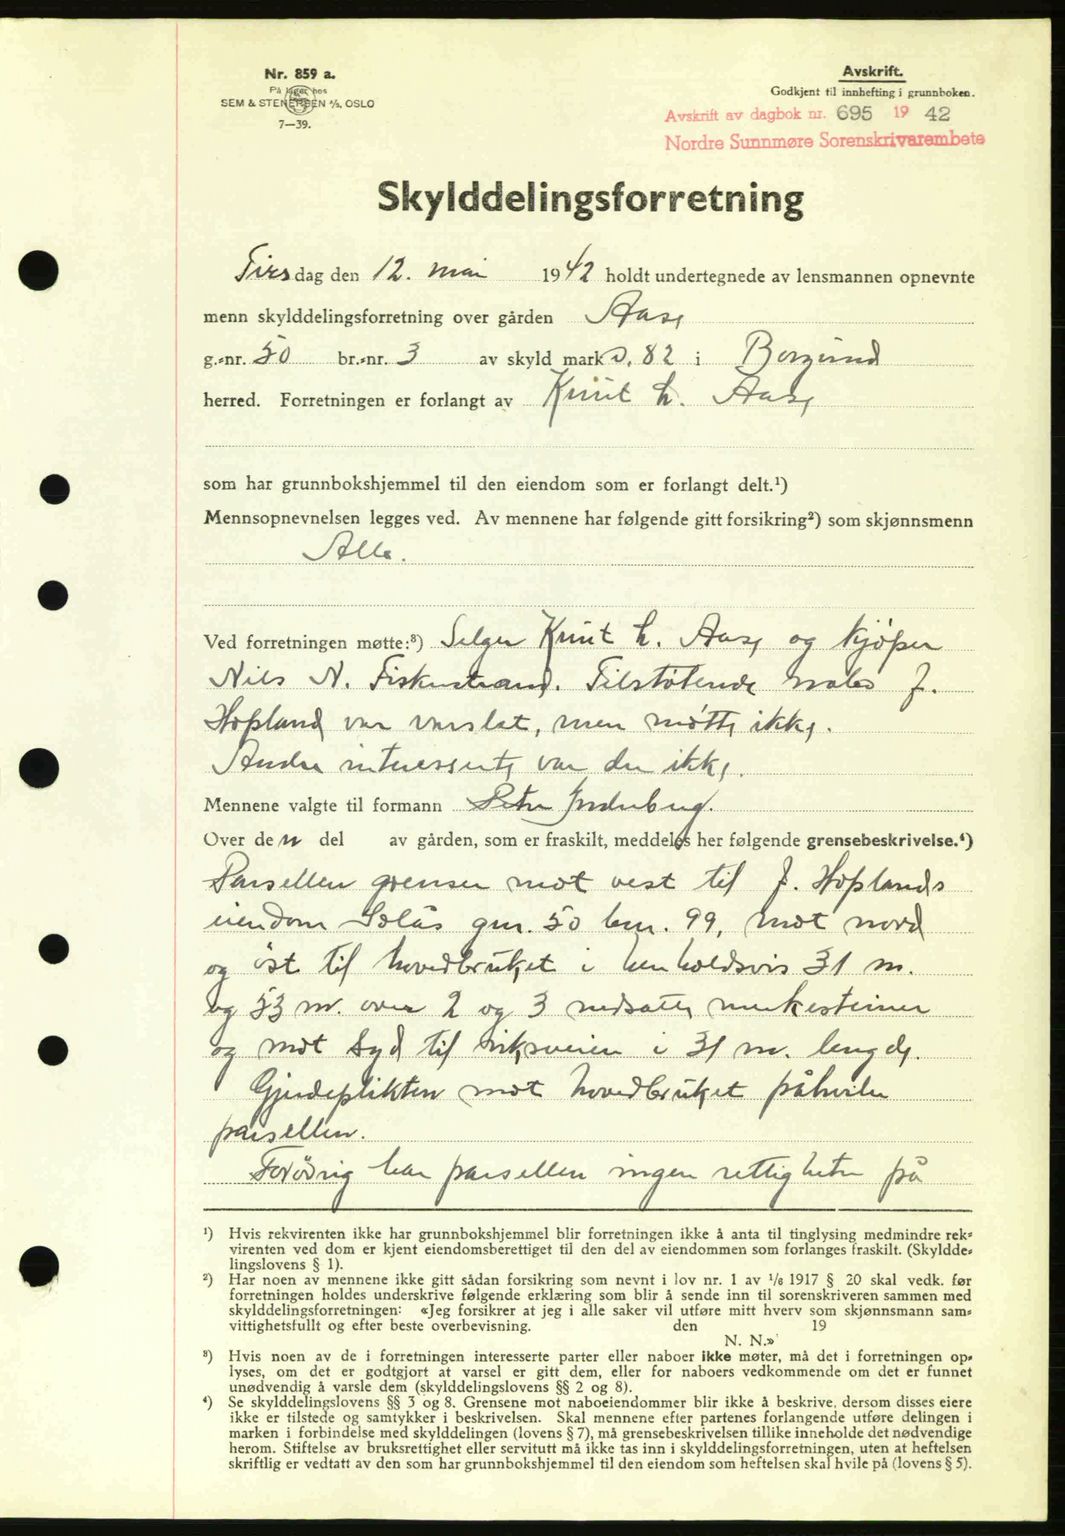 Nr. 859 a.
På lager hos
SEM & STENERSEN A/S, OSLO
7—39.
Avskrift.
Godkjent til innhefting i grunnboken.
Avskrift av dagbok nr. 695 19 42
Nordre Sunnmøre Sorenskrivarembete
Skylddelingsforretning
Tirsdag den 12. mai 1942 holdt undertegnede av lensmannen opnevnte
menn skylddelingsforretning over gården Aase
g.-nr. 50 br.-nr. 3 av skyld mark 0.82 i Borgund
herred. Forretningen er forlangt av Knut L. Aase
som har grunnbokshjemmel til den eiendom som er forlangt delt.¹)
Mennsopnevnelsen legges ved. Av mennene har følgende gitt forsikring²) som skjønnsmenn
Alle.
Ved forretningen møtte:³) Selger Knut L. Aase og kjøper
Nils N. Fiskerstrand. Tilstøtende nabo J.
Hopland var varslet, men møtte ikke.
Andre interessente var der ikke.
Mennene valgte til formann Peter
Over den del av gården, som er fraskilt, meddeles her følgende grensebeskrivelse.⁴)
Parsellen grenser mot vest til J. Hoplands
eiendom Solås gnr. 50 bnr. 99, mot nord
og øst til hovedbruket i henholdsvis 31 m.
og 53 m. over 2 og 3 nedsatte merkesteiner
og mot syd til riksveien i 31 m. lengde.
Gjerdeplikten mot hovedbruket påhviler
parsellen.
Forøvrig har parsellen ingen rettigheter på
¹) Hvis rekvirenten ikke har grunnbokshjemmel blir forretningen ikke å anta til tinglysing medmindre rek-
virenten ved dom er kjent eiendomsberettiget til den del av eiendommen som forlanges fraskilt. (Skyldde-
lingslovens § 1).
²) Har noen av mennene ikke gitt sådan forsikring som nevnt i lov nr. 1 av ¹/₆ 1917 § 20 skal vedk. før
forretningen holdes underskrive følgende erklæring som blir å sende inn til sorenskriveren sammen med
skylddelingsforretningen: «Jeg forsikrer at jeg i alle saker vil utføre mitt hverv som skjønnsmann sam-
vittighetsfullt og efter beste overbevisning. den 19
N. N.»
³) Hvis noen av de i forretningen interesserte parter eller naboer ikke møter, må det i forretningen op-
lyses, om det er godtgjort at varsel er gitt dem, eller for naboers vedkommende om det er funnet
unødvendig å varsle dem (skylddelingslovens §§ 2 og 8).
⁴) Se skylddelingslovens §§ 3 og 8. Grensene mot naboeiendommer blir ikke å beskrive, dersom disses eiere
ikke er tilstede og samtykker i beskrivelsen. Skal mennene efter partenes forlangende utføre delingen i
marken i forbindelse med skylddelingen (lovens § 7), må grensebeskrivelsen tillike inneholde det nødvendige
herom. Stiftelse av bruksrettighet eller servitutt må ikke tas inn i skylddelingsforretningen, uten at heftelsen
skriftlig er vedtatt av den som har grunnbokshjemmel til den eiendom som heftelsen skal hvile på (lovens § 5).